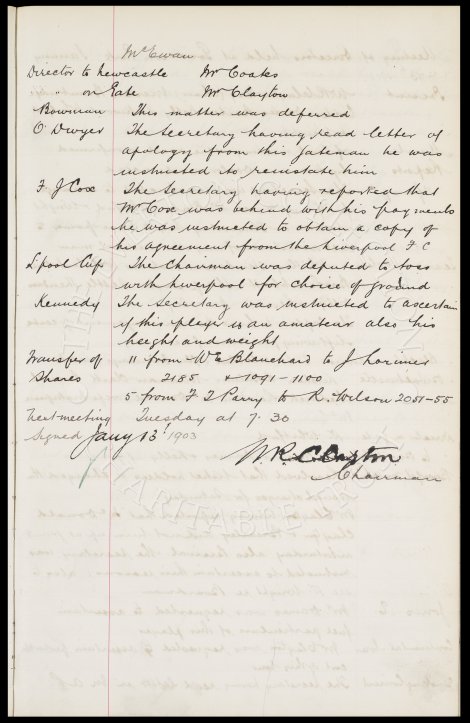 McEwan
Director to Newcastle Mr Coates
" on Gate Mr Clayton
Bowman This matter was deferred
O'Dwyer The Secretary having read letter of
apology from this gateman he was
instructed to reinstate him
F J Cox The Secretary having reported that
Mr Cox was behind with his payments
he was instructed to obtain a copy of
his agreement from the Liverpool F C
L'pool Cup The Chairman was deputed to toss
with Liverpool for choice of ground
Kennedy The Secretary was instructed to ascertain
if this player is an amateur also his
height and weight
Transfer of 11 from W E Blanchard to J Lorimer
Shares 2185 & 1091-1100
5 from F J Parry to R. Wilson 2051-55
Next meeting Tuesday at 7.30
Signed Jany 13' 1903
W.R. Clayton
Chairman
CHARITABLE